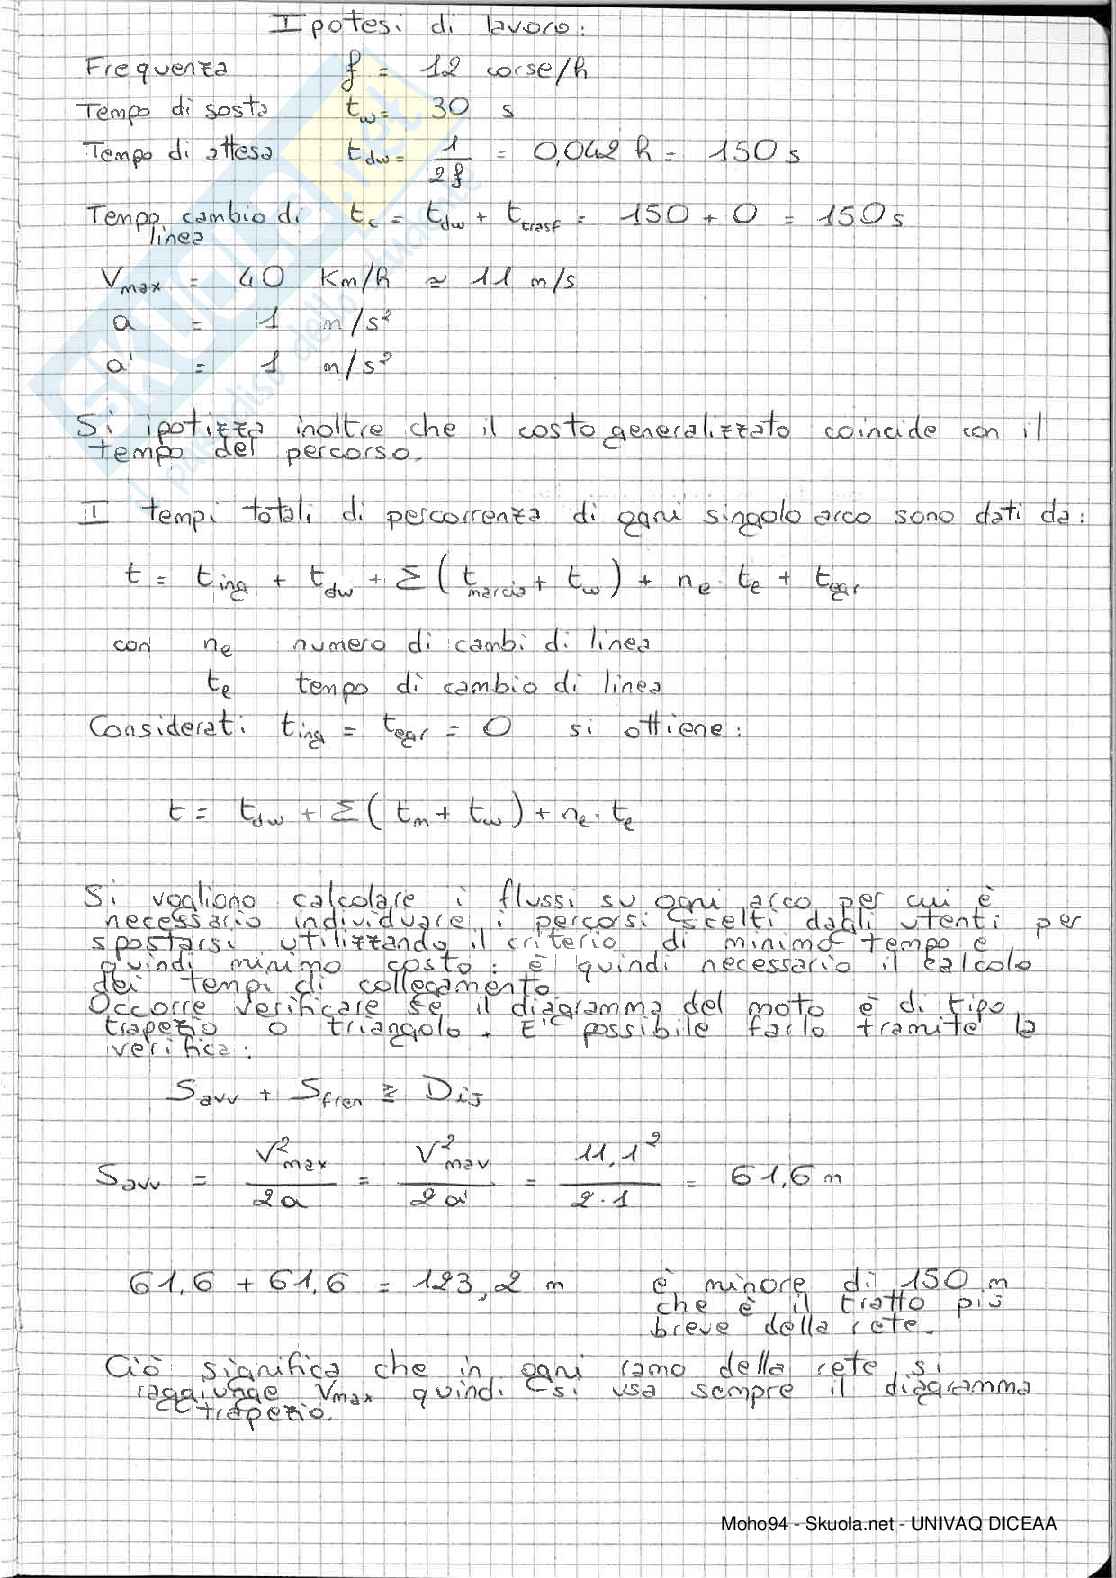 Ipotesi di lavoro:
Frequenza f = 12 corse/h
Tempo di sosta tw = 30 s
Tempo di attesa tdw = 1/2f = 0,042 h = 150 s
Tempo cambio di linea tc = tdw + ttrasf = 150 + 0 = 150 s
Vmax = 40 Km/h ≃ 11 m/s
a = 1 m/s²
a' = 1 m/s²
Si ipotizza inoltre che il costo generalizzato coincide con il
tempo del percorso.
I tempi totali di percorrenza di ogni singolo arco sono dati da:
t = ting + tdw + Σ(tmarcia + tw) + ne · te + tegr
con ne numero di cambi di linea
te tempo di cambio di linea
Considerati ting = tegr = 0 si ottiene:
t = tdw + Σ(tm + tw) + ne · te
Si vogliono calcolare i flussi su ogni arco per cui è
necessario individuare i percorsi scelti dagli utenti per
spostarsi utilizzando il criterio di minimo tempo e
quindi minimo costo: è quindi necessario il calcolo
dei tempi di collegamento.
Occorre verificare se il diagramma del moto è di tipo
trapezio o triangolo. E' possibile farlo tramite la
verifica:
Savv + Sfren ≥ Dij
Savv = V²max/2a = V²max/2a' = 11,1²/2·1 = 61,6 m
61,6 + 61,6 = 123,2 m è minore di 150 m
che è il tratto più
breve della rete.
Ciò significa che in ogni ramo della rete si
raggiunge Vmax quindi si usa sempre il diagramma
trapezio.
SKUOLA.net
il paradiso dello studente
Moho94 - Skuola.net - UNIVAQ DICEAA